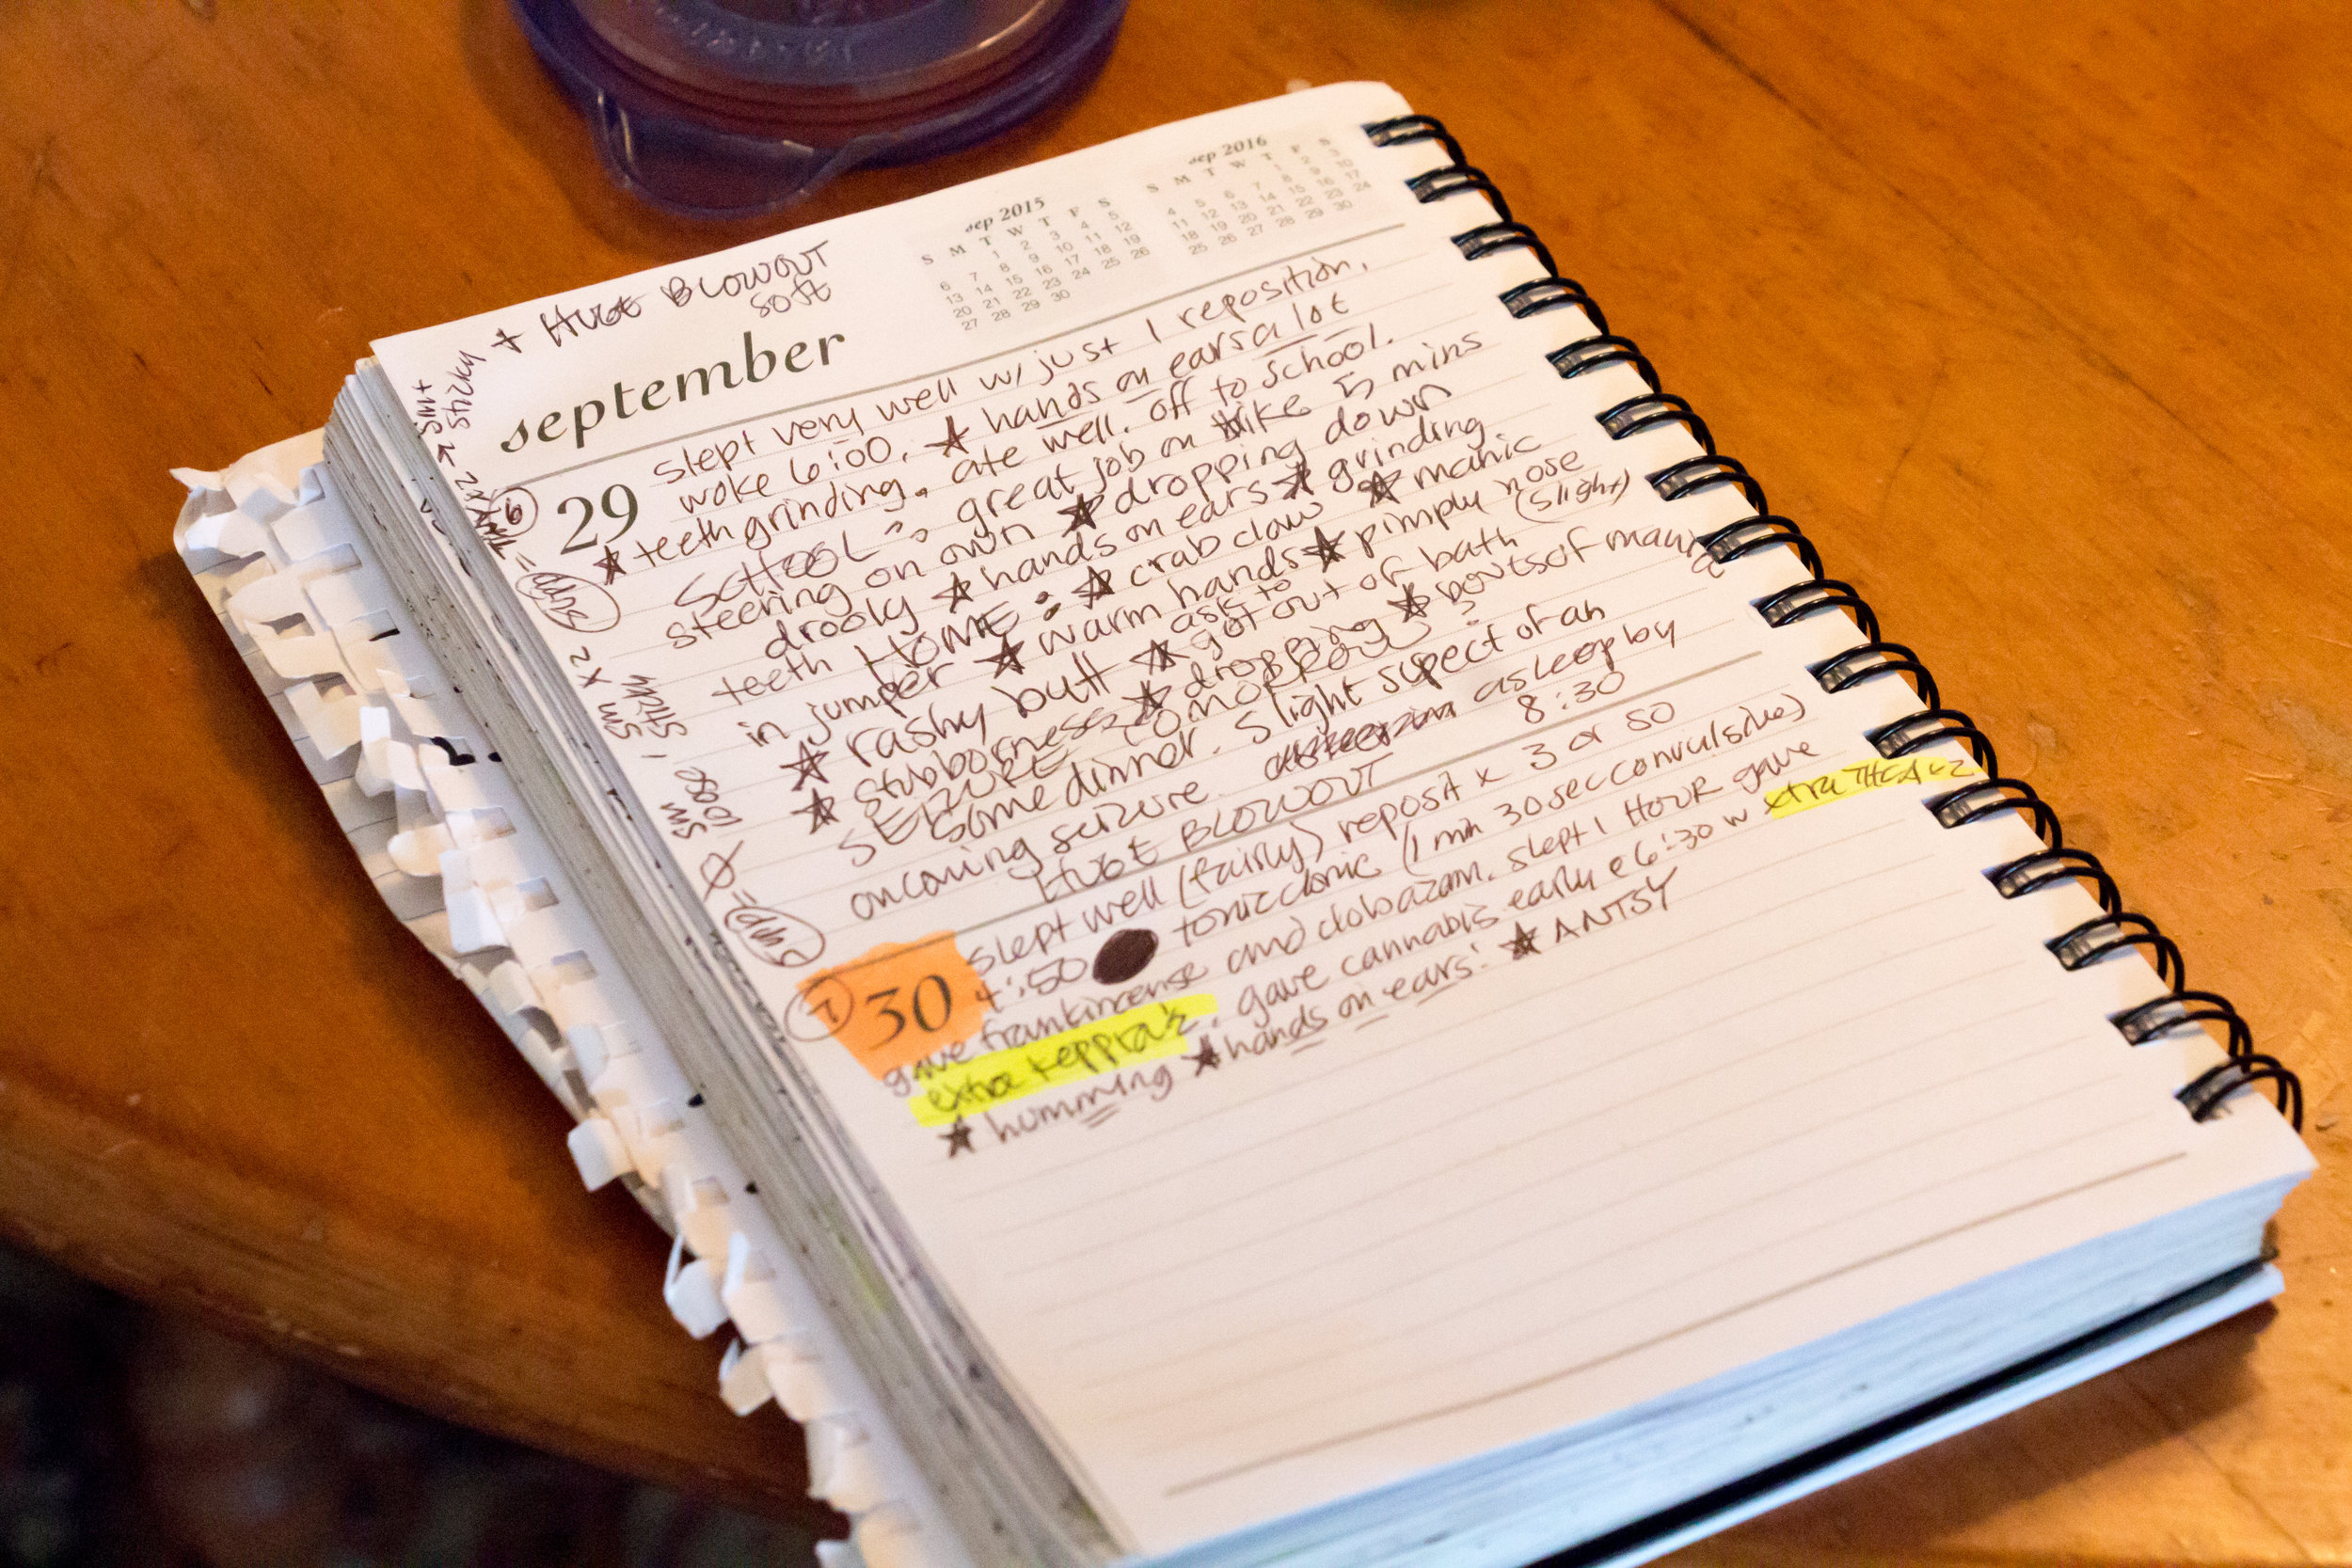 + HUGE BLOWOUT
soft
september
sep 2015
S M T W T F S
1 2 3 4 5
6 7 8 9 10 11 12
13 14 15 16 17 18 19
20 21 22 23 24 25 26
27 28 29 30
sep 2016
S M T W T F S
1 2 3
4 5 6 7 8 9 10
11 12 13 14 15 16 17
18 19 20 21 22 23 24
25 26 27 28 29 30
6
29
slept very well w/ just 1 reposition.
woke 6:00. ★ hands on ears a lot
★ teeth grinding. ate well. off to school.
SCHOOL: great job on bike 15 mins
steering on own ★ dropping down
drooly ★ hands on ears ★ grinding
teeth HOME: ★ crab claw ★ manic
in jumper ★ warm hands ★ pimply nose
★ rashy butt ★ ask to got out of bath (slight)
★ stubborness ★ dropping ★ bouts of mania
SEIZURE TOMORROW?
some dinner. slight supect of an
oncoming seizure. asleep by
8:30
HUGE BLOWOUT
sm x2
sticky
1 loose
sm
7
30
slept well (fairly) reposit x 3 or so
4:50 tonic clonic (1 min 30 sec convulsive)
gave frankincense and clobazam. slept 1 HOUR gave
extra keppra. gave cannabis early @ 6:30 w xtra THCA
★ humming ★ hands on ears! ★ ANTSY